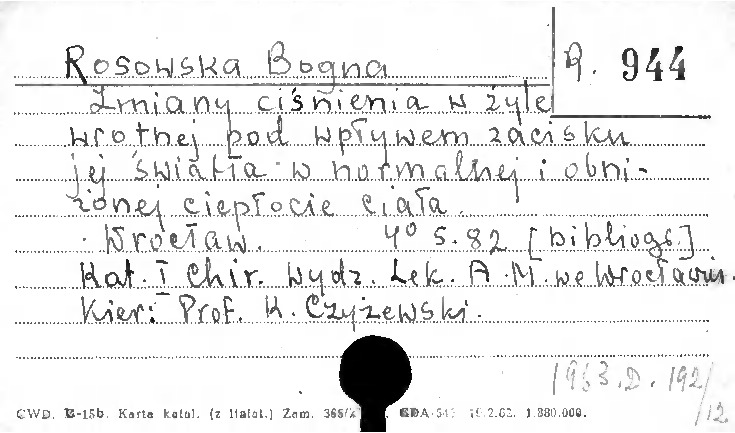 Rosowska Bogna
R. 944
Zmiany ciśnienia w żyle
wrotnej pod wpływem zacisku
jej światła w normalnej i obni-
żonej ciepłocie ciała.
Wrocław. 4° s. 82 [bibliogr.]
Kat. I Chir. Wydz. Lek. A.M. we Wrocławiu.
Kier: Prof. K. Czyżewski.
1963.D.192/12
CWD. B-15b. Karta katal. (z liatat.) Zam. 19.2.62. 1.880.000.